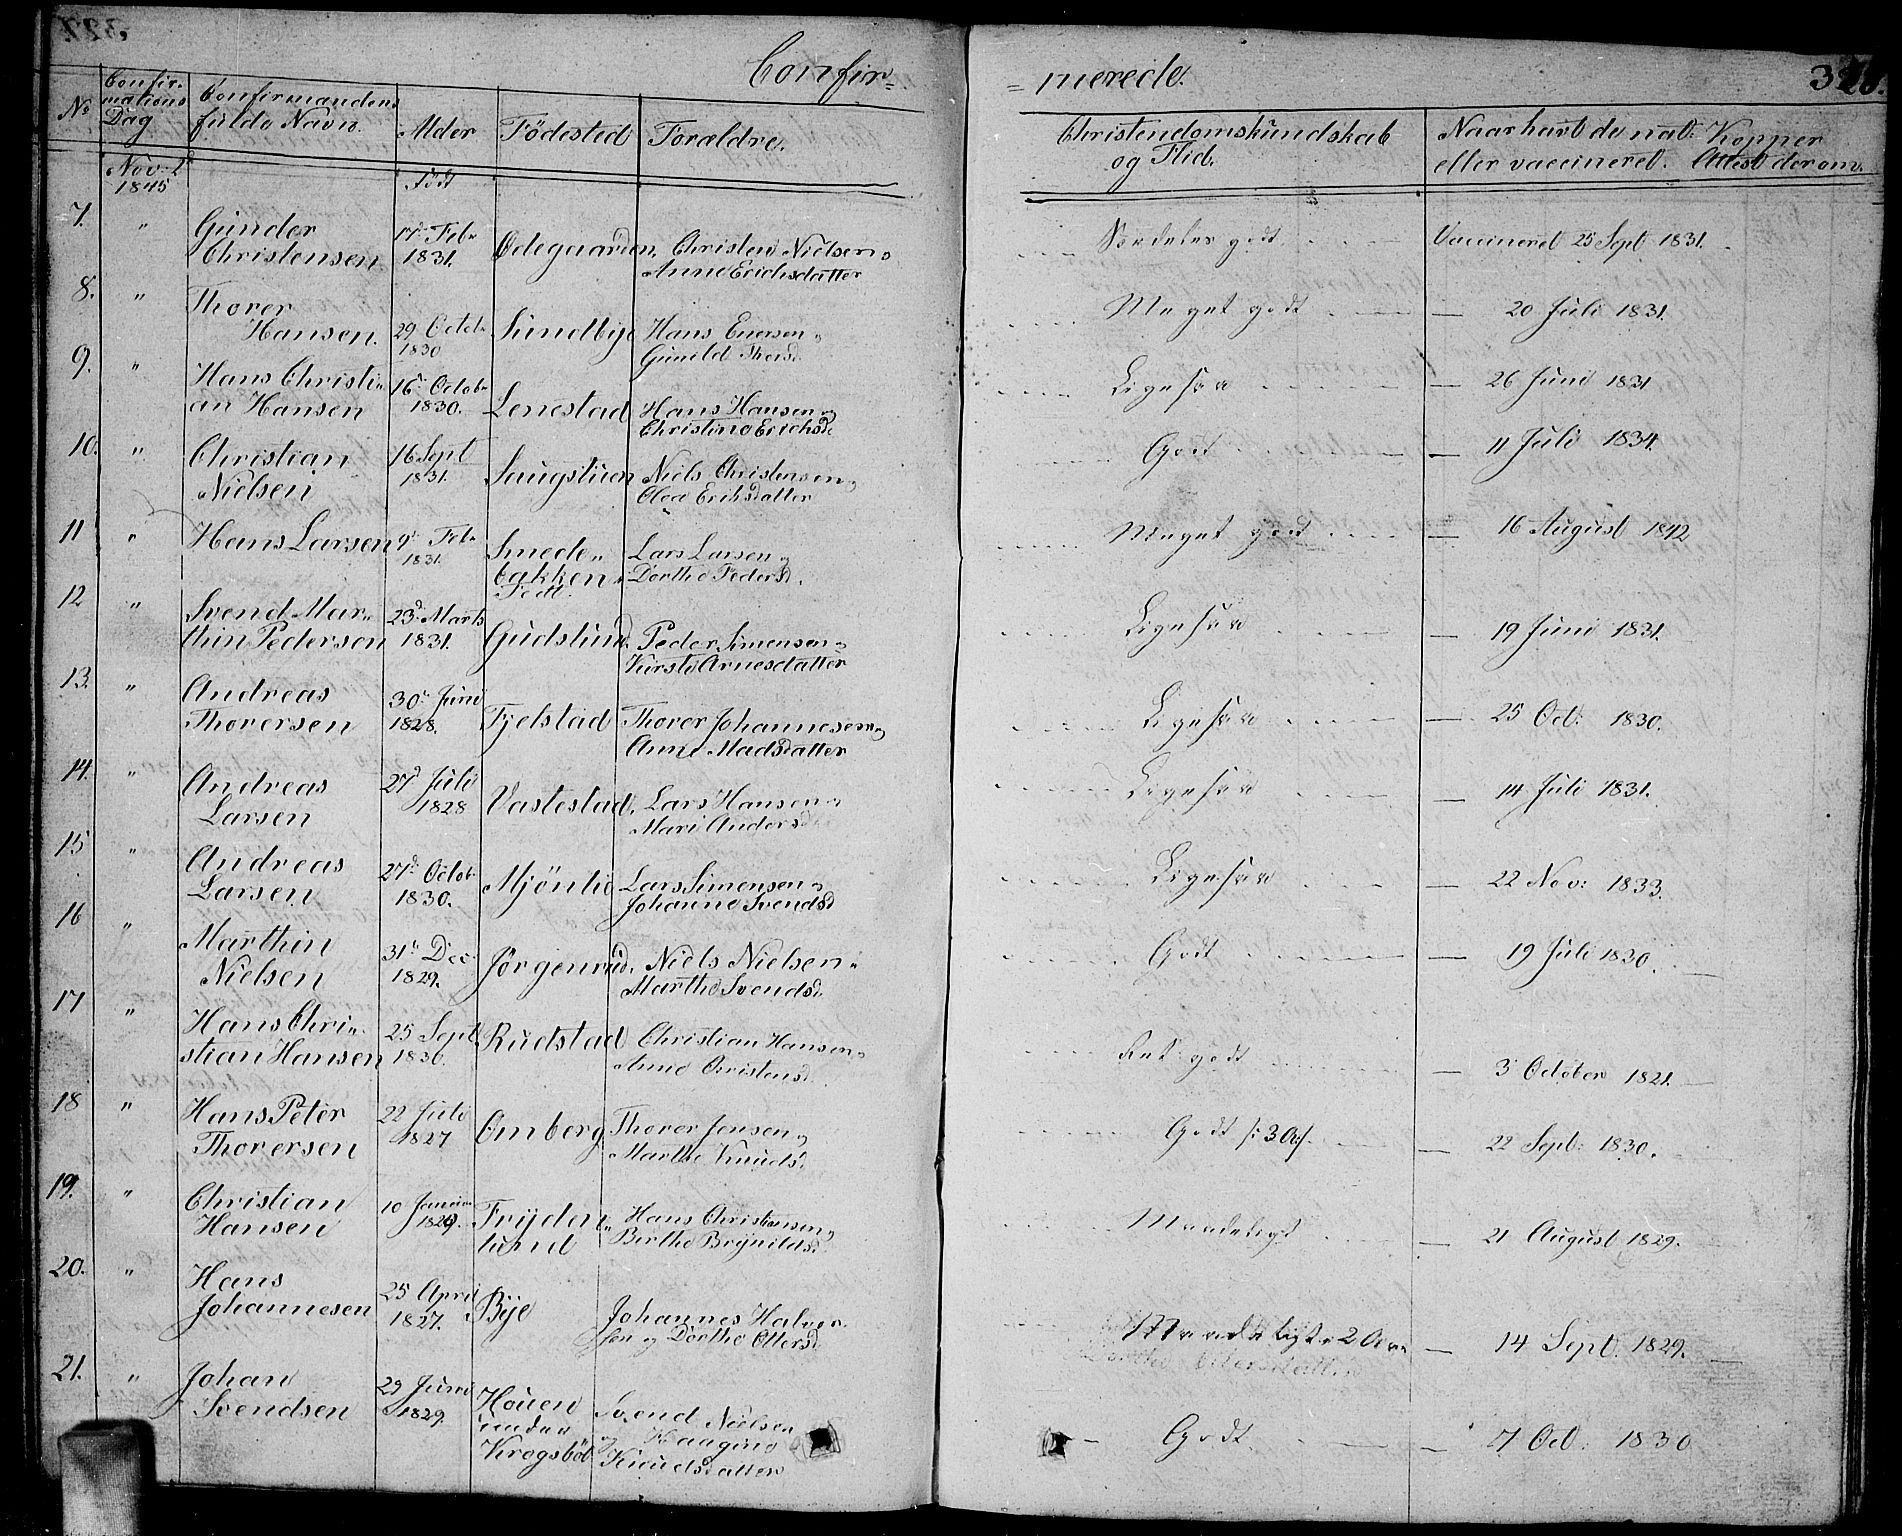 Confir=
=merede.
No
Confir-
mations
Dag
Confirmandens
fulde Navn.
Alder
Fødested
Forældre.
Christendomskundskab
og Flid.
Naar havt de nat: Kopper
eller vaccineret. Attest derom.
Nov. 2
1845
Født
7. " Gunder
Christensen
17d Febr
1831.
Ødegaarden. Christen Nielsen og
Anne Erichsdatter
Særdeles godt Vaccineret 25 Sept 1831.
8. " Thorer
Hansen.
29 Octob
1830
Sundbye Hans Enersen og
Gunild Thorsd.
Meget godt — 20 Juli 1831.
9. " Hans Christi-
an Hansen
16d Octob
1830.
Lenestad Hans Hansen og
Christine Erichsd.
Ligesaa — 26 Juni 1831
10. " Christian
Nielsen
16 Sept
1831.
Saugstuen Niels Christensen og
Olea Eriksdatter
Godt — 11 Juli 1834.
11 " Hans Larsen 9d Feb
1831.
Smede-
bakken.
Lars Larsen og
Dorthe Peders.
Meget godt — 16 August 1842
12 " Svend Mar-
thin Pedersen
23d Marts
1831.
Gudslund. Peder Simensen og
Kirsti Arnesdatter
Ligesaa — 19 Juni 1831.
13. " Andreas
Thorersen
30d Juni
1828.
Fjelstad Thorer Johannesen og
Anne Madsdatter
Ligesaa — 25 Oct: 1830.
14. " Andreas
Larsen
27d Juli
1828
Vastestad. Lars Hansen og
Mari Andersd
Ligesaa — 14 Juli 1831.
15 " Andreas
Larsen
27d Octob
1830.
Mjøntie Lars Simensen og
Johanne Svendsd
Ligesaa — 22 Nov: 1833.
16 " Marthin
Nielsen
31d Dec
1829.
Jørgenrud. Niels Nielsen og
Marthe Svendsd.
Godt — 19 Juli 1830.
17 " Hans Chri-
stian Hansen
25 Sept
1830.
Rudstad Christian Hansen og
Anne Christensd.
Ret godt — 3 October 1821.
18 " Hans Peter
Thorersen
22 Juli
1827
Omberg Thorer Jensen og
Marthe Knuds.
Godt — 22 Sept: 1830.
19. " Christian
Hansen
10 Januar
1829.
Frijden-
lund
Hans Christiansen og
Berthe Brynildsd.
Maadeligt — 21 August 1829.
20. " Hans
Johannesen
25 April
1827.
Bye Johannes Halvor
sen og Dorthe Ottersd
Maadeligt — 14 Sept. 1829.
21. " Johan
Svendsen
29 Juni
1829.
Houen
under
Krogsbøl
Svend Nielsen
og Haagine
Knudsdatter
Godt — 7 Oct: 1830